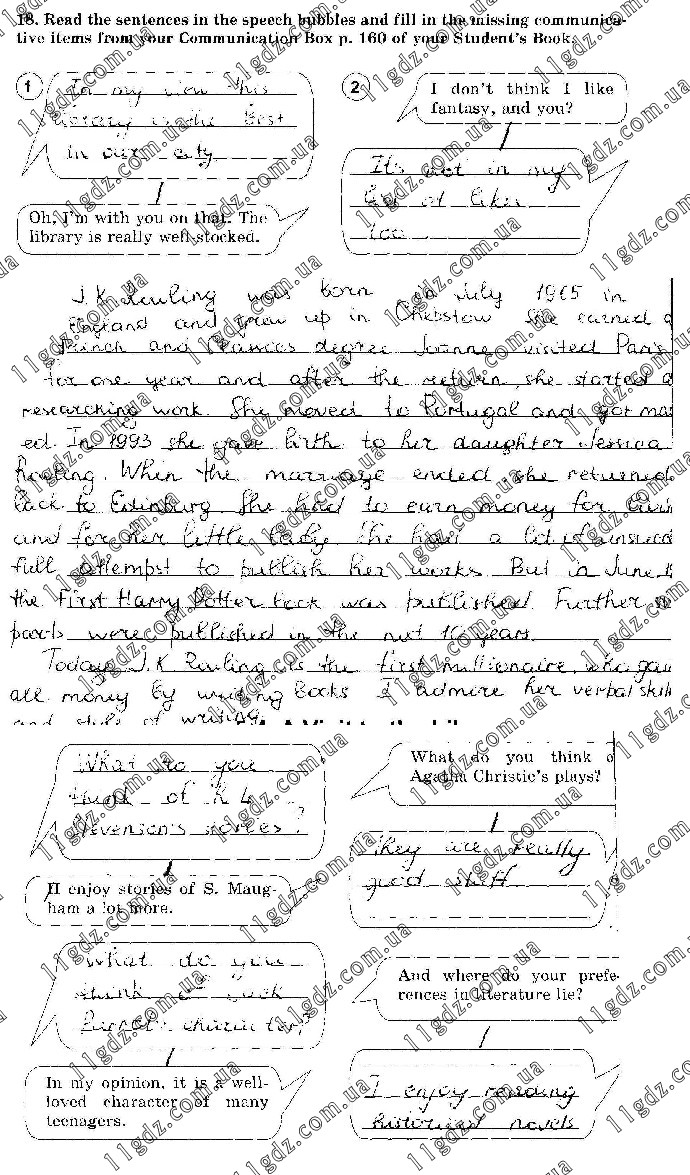 18. Read the sentences in the speech bubbles and fill in the missing communica-
tive items from your Communication Box p. 160 of your Student's Book.
1
In my view this
library is the best
in our city
Oh, I'm with you on that. The
library is really well-stocked.
2
I don't think I like
fantasy, and you?
It's not in my
list of like
too
J.K. Rowling was born in July 1965 in
England and grew up in Chepstow She earned a
French and degree Joanne visited Paris
for one year and after the return she started a
researching work. She moved to Portugal and got mar
ed. In 1993 she gave birth to her daughter Jessica
Rowling. When the marriage ended she returned
back to Edinburg. She had to earn money for
and for her little baby. She had a lot of
full attempst to publish her works. But in June
the First Harry Potter book was published. Further
parts were published in the nut 10 years.
Today J.K. Rowling is the first millionaire, who gain
all money by writing books I admire her verbal skill
and style of writing
What do you
think of R L
Stevenson's stories?
I enjoy stories of S. Maug-
ham a lot more.
What do you think o
Agatha Christie's plays?
They are really
good stuff
What do you
think of
character?
In my opinion, it is a well-
loved character of many
teenagers.
And where do your prefe-
rences in literature lie?
I enjoy reading
historical novels
11gdz.com.ua